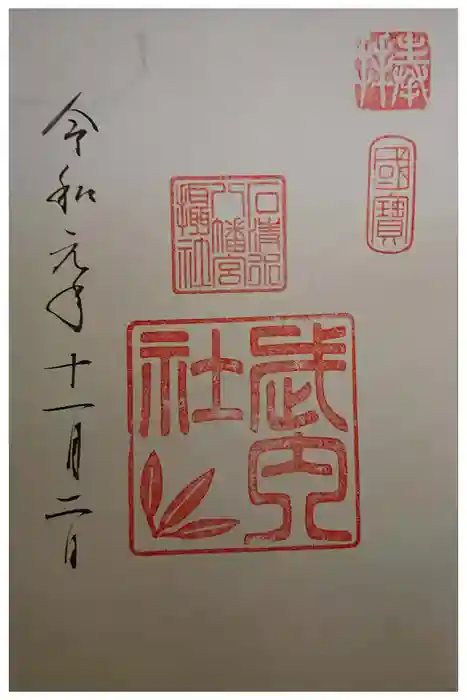 奉拝
國寶
石清水
八幡宮
攝社
武内
社
令和元年十一月二日